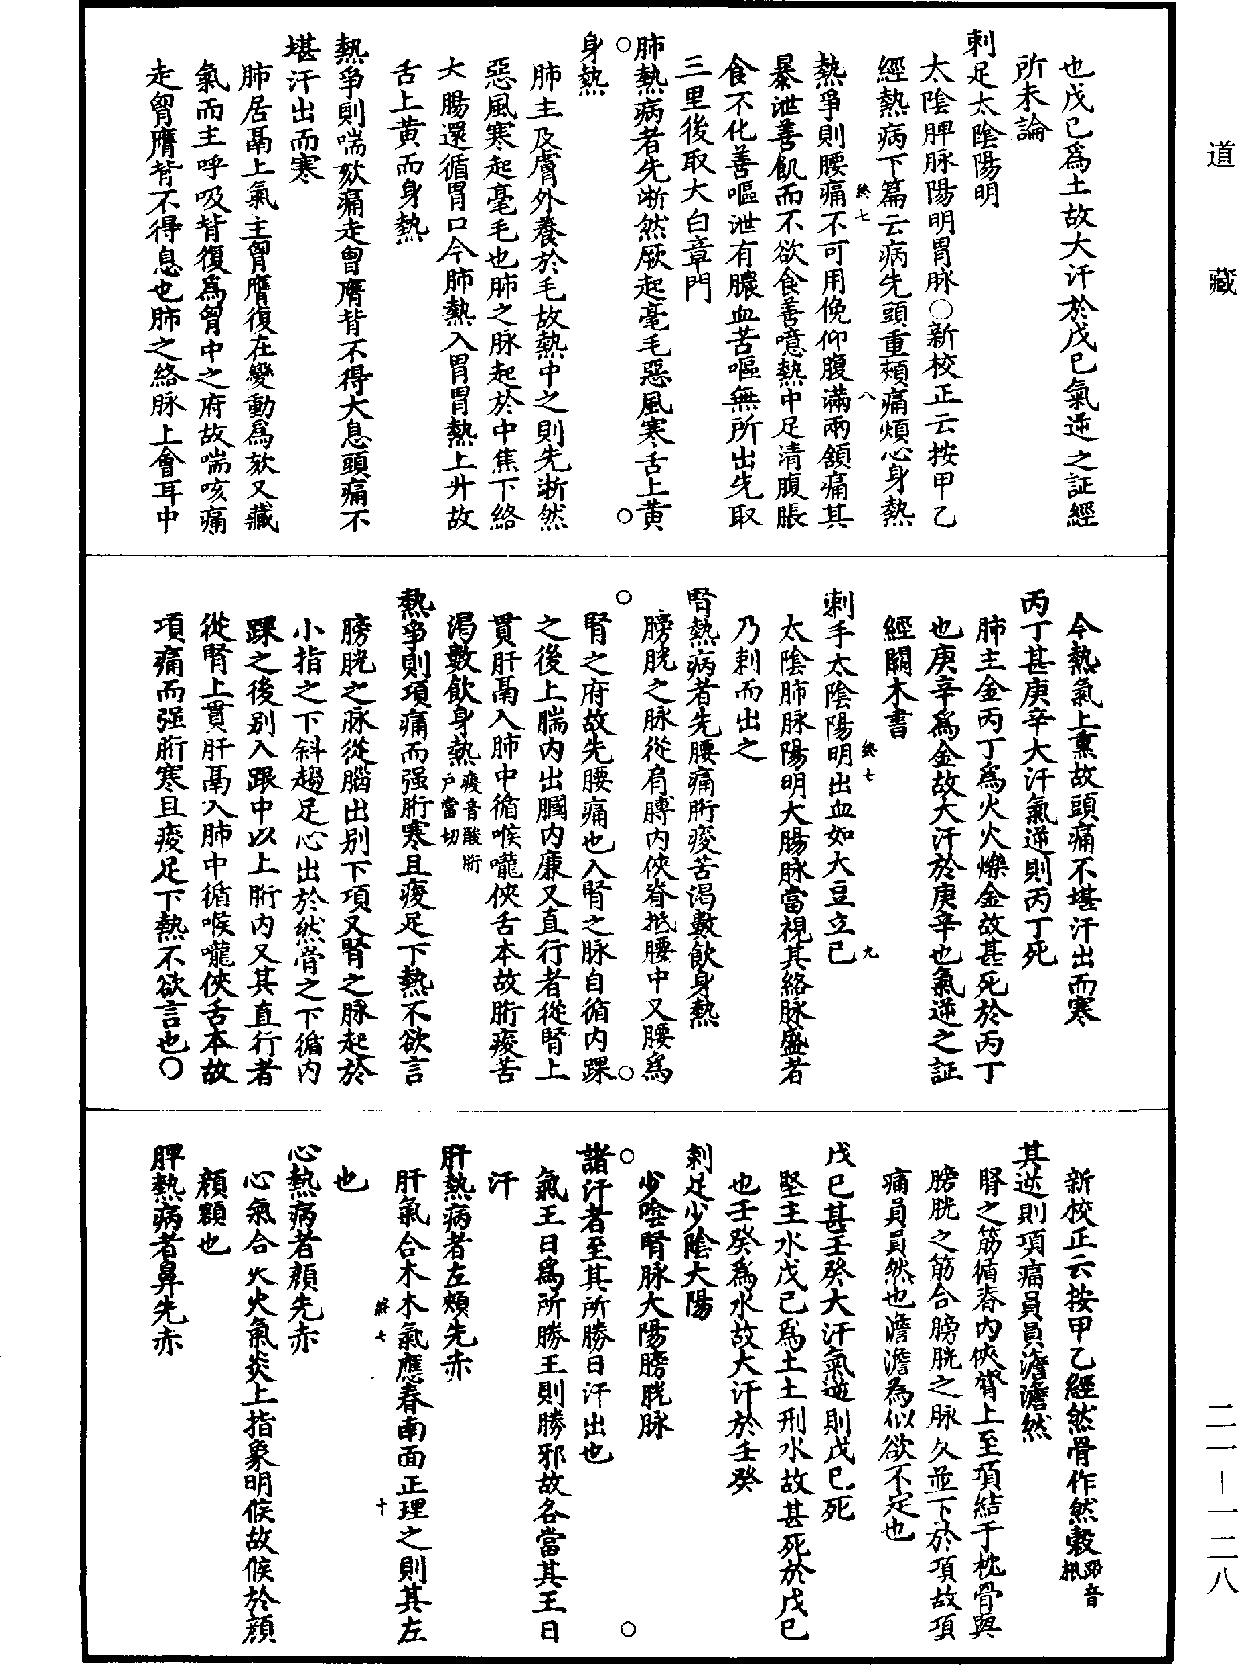 道藏
也戊巳爲土故大汗於戊巳氣逆之証經
所未論
刺足太陰陽明
太陰脾脉陽明胃脉○新校正云按甲乙
經熱病下篇云病先頭重頰痛煩心身熱
熱爭則腰痛不可用俛仰腹滿兩頷痛甚
暴泄善飢而不欲食善噫熱中足清腹脹
食不化善嘔泄有膿血苦嘔無所出先取
三里後取大白章門
肺熱病者先淅然厥起毫毛惡風寒舌上黃
身熱
肺主皮膚外養於毛故熱中之則先淅然
惡風寒起毫毛也肺之脉起於中焦下絡
大腸還循胃口今肺熱入胃胃熱上升故
舌上黃而身熱
熱爭則喘欬痛走胷膺背不得大息頭痛不
堪汗出而寒
肺居鬲上氣主胷膺復在變動爲欬又藏
氣而主呼吸背復爲胷中之府故喘咳痛
走胷膺背不得息也肺之絡脉上會耳中
終七 八
今熱氣上熏故頭痛不堪汗出而寒
丙丁甚庚辛大汗氣逆則丙丁死
肺主金丙丁爲火火爍金故甚死於丙丁
也庚辛爲金故大汗於庚辛也氣逆之証
經闕未書
刺手太陰陽明出血如大豆立已
太陰肺脉陽明大腸脉當視其絡脉盛者
乃刺而出之
腎熱病者先腰痛胻痠苦渴數飲身熱
膀胱之脉從肩髆內俠脊抵腰中又腰爲
腎之府故先腰痛也入腎之脉自循內踝
之後上腨內出膕內廉又直行者從腎上
貫肝鬲入肺中循喉嚨俠舌本故胻痠苦
渴數飲身熱痠音酸胻戶當切
熱爭則項痛而强胻寒且痠足下熱不欲言
膀胱之脉從腦出别下項又腎之脉起於
小指之下斜趨足心出於然骨之下循內
踝之後别入跟中以上胻內又其直行者
從腎上貫肝鬲入肺中循喉嚨俠舌本故
項痛而强胻寒且痠足下熱不欲言也○
終七 九
新校正云按甲乙經然骨作然穀
其逆則項痛員員澹澹然
腎之筋循脊內俠膂上至項結于枕骨與
膀胱之筋合膀胱之脉久並下於項故項
痛員員然也澹澹為似欲不定也
戊巳甚壬癸大汗氣逆則戊巳死
堅主水戊巳爲土土刑水故甚死於戊巳
也壬癸爲水故大汗於壬癸
刺足少陰太陽
少陰腎脉大陽膀胱脉
諸汗者至其所勝日汗出也
氣王日爲所勝王則勝邪故各當其王日
汗
肝熱病者左頰先赤
肝氣合木木氣應春南面正理之則其左
也
心熱病者顏先赤
心氣合火火氣炎上指象明候故候於顏
顏額也
脾熱病者鼻先赤
終七 十
二一－一二八